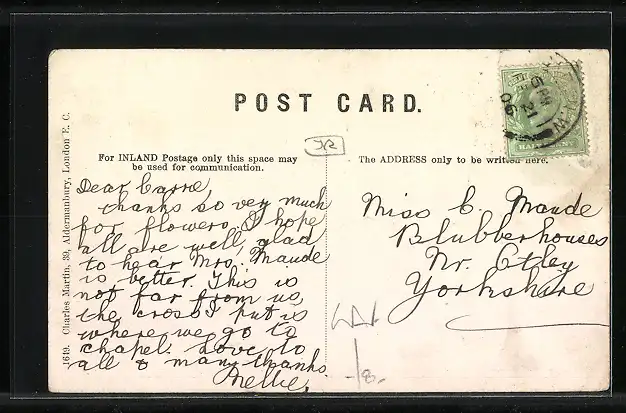 POST CARD.
For INLAND Postage only this space may
be used for communication.
The ADDRESS only to be written here.
1619. Charles Martin, 39, Aldermanbury, London E. C.
Dear Carrie,
thanks so very much
for flowers. I hope
all are well, glad
to hear Mrs. Maude
is better. This is
not far from us
the cross I put is
where we go to
chapel. Love to
all & many thanks
Nellie.
Miss C. Maude
Blubberhouses
Nr. Otley
Yorkshire